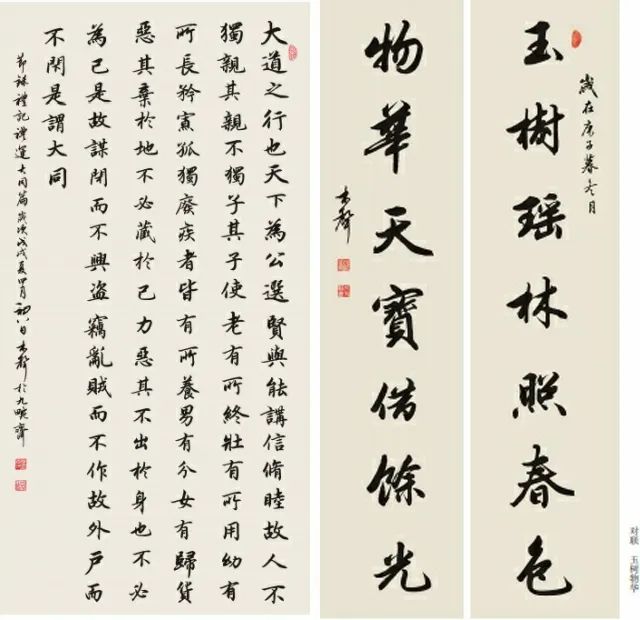 对联 玉树物华
歲在庚子暮冬月
玉樹瑶林照春色
物華天寶借餘光
大道之行也天下為公選賢與能講信脩睦故人不
獨親其親不獨子其子使老有所終壯有所用幼有
所長矜寡孤獨廢疾者皆有所養男有分女有歸貨
惡其棄於地不必藏於己力惡其不出於身也不必
為己是故謀閉而不興盜竊亂賊而不作故外戶而
不閉是謂大同
節録禮記禮運大同篇歲次戊戌夏四月初八日於九畹齋